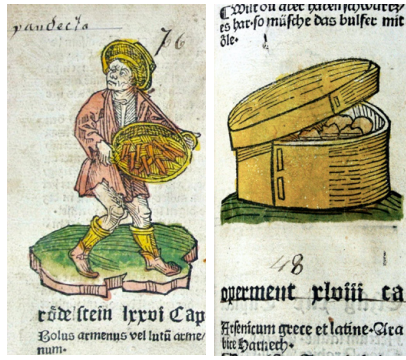 pandecta
76
rőde stein lxxvi Cap
Bolus armenus vel lutū arme/
num·
Wilt du aber haben schwartz
es har·so müsche das bulfer mit
öle·
48
operment xlviii ca
Arsenicum grece et latine·Ara
bice Harnech·